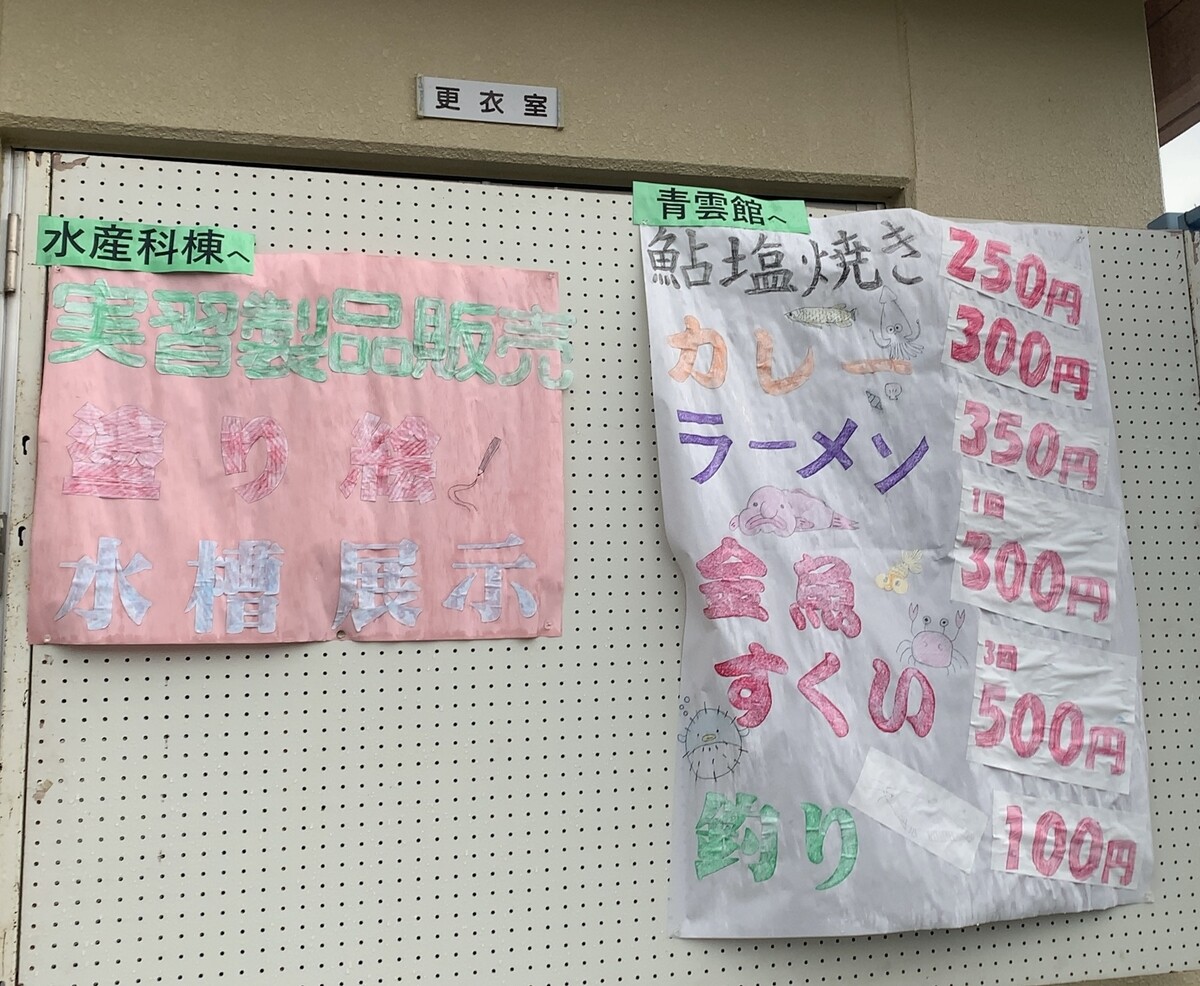 更衣室
水産科棟へ
実習製品販売
塗り絵
水槽展示
青雲館へ
鮎塩焼き 250円
カレー 300円
ラーメン 350円
金魚 1回 300円
すくい 3回 500円
釣り 100円